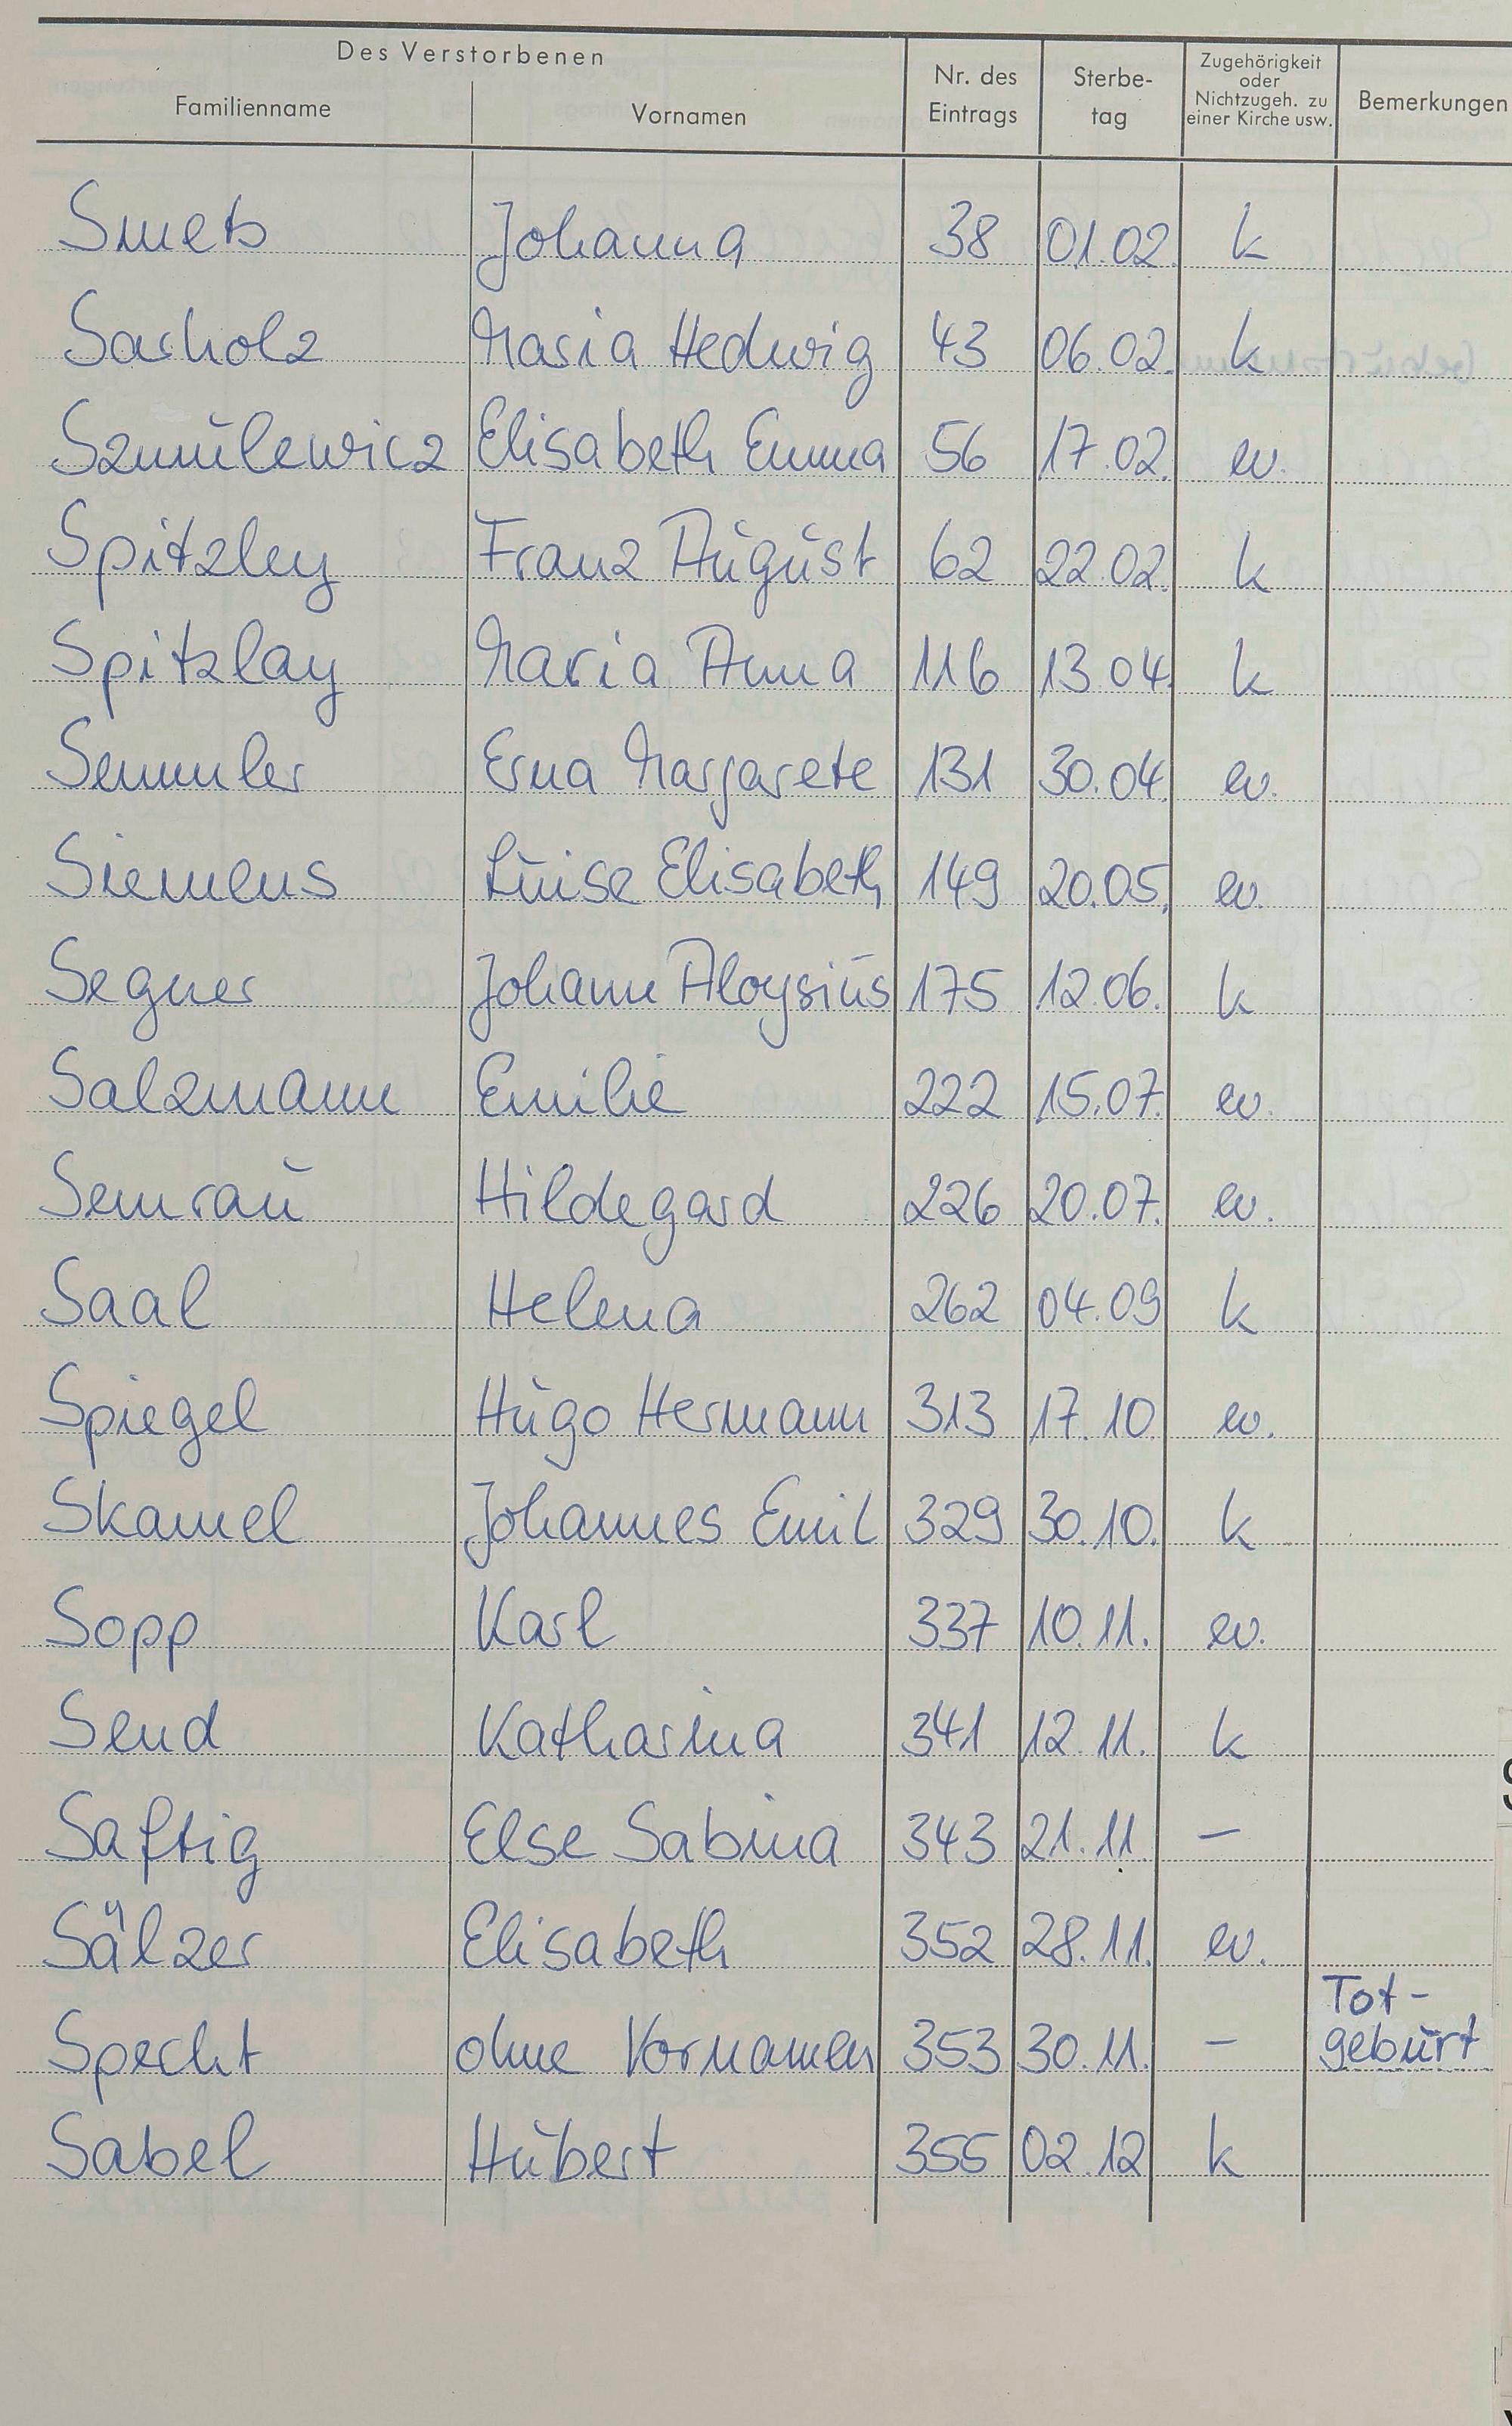 Des Verstorbenen
Familienname Vornamen Nr. des Eintrags Sterbe-tag Zugehörigkeit oder Nichtzugeh. zu einer Kirche usw. Bemerkungen
Smets Johanna 38 01.02. k
Sarholz Maria Hedwig 43 06.02. k
Szmulewicz Elisabeth Emma 56 17.02. ev.
Spitzley Franz August 62 22.02. k
Spitzlay Maria Anna 116 13.04. k
Semmler Erna Margarete 131 30.04. ev.
Siemens Luise Elisabeth 149 20.05. ev.
Segner Johann Aloysius 175 12.06. k
Salzmann Emilie 222 15.07. ev.
Semrau Hildegard 226 20.07. ev.
Saal Helena 262 04.09 k
Spiegel Hugo Hermann 313 17.10 ev.
Skamel Johannes Emil 329 30.10. k
Sopp Karl 337 10.11. ev.
Send Katharina 341 12.11. k
Saftig Else Sabina 343 21.11. –
Sälzer Elisabeth 352 28.11. ev.
Specht ohne Vornamen 353 30.11. – Tot-geburt
Sabel Hubert 355 02.12 k